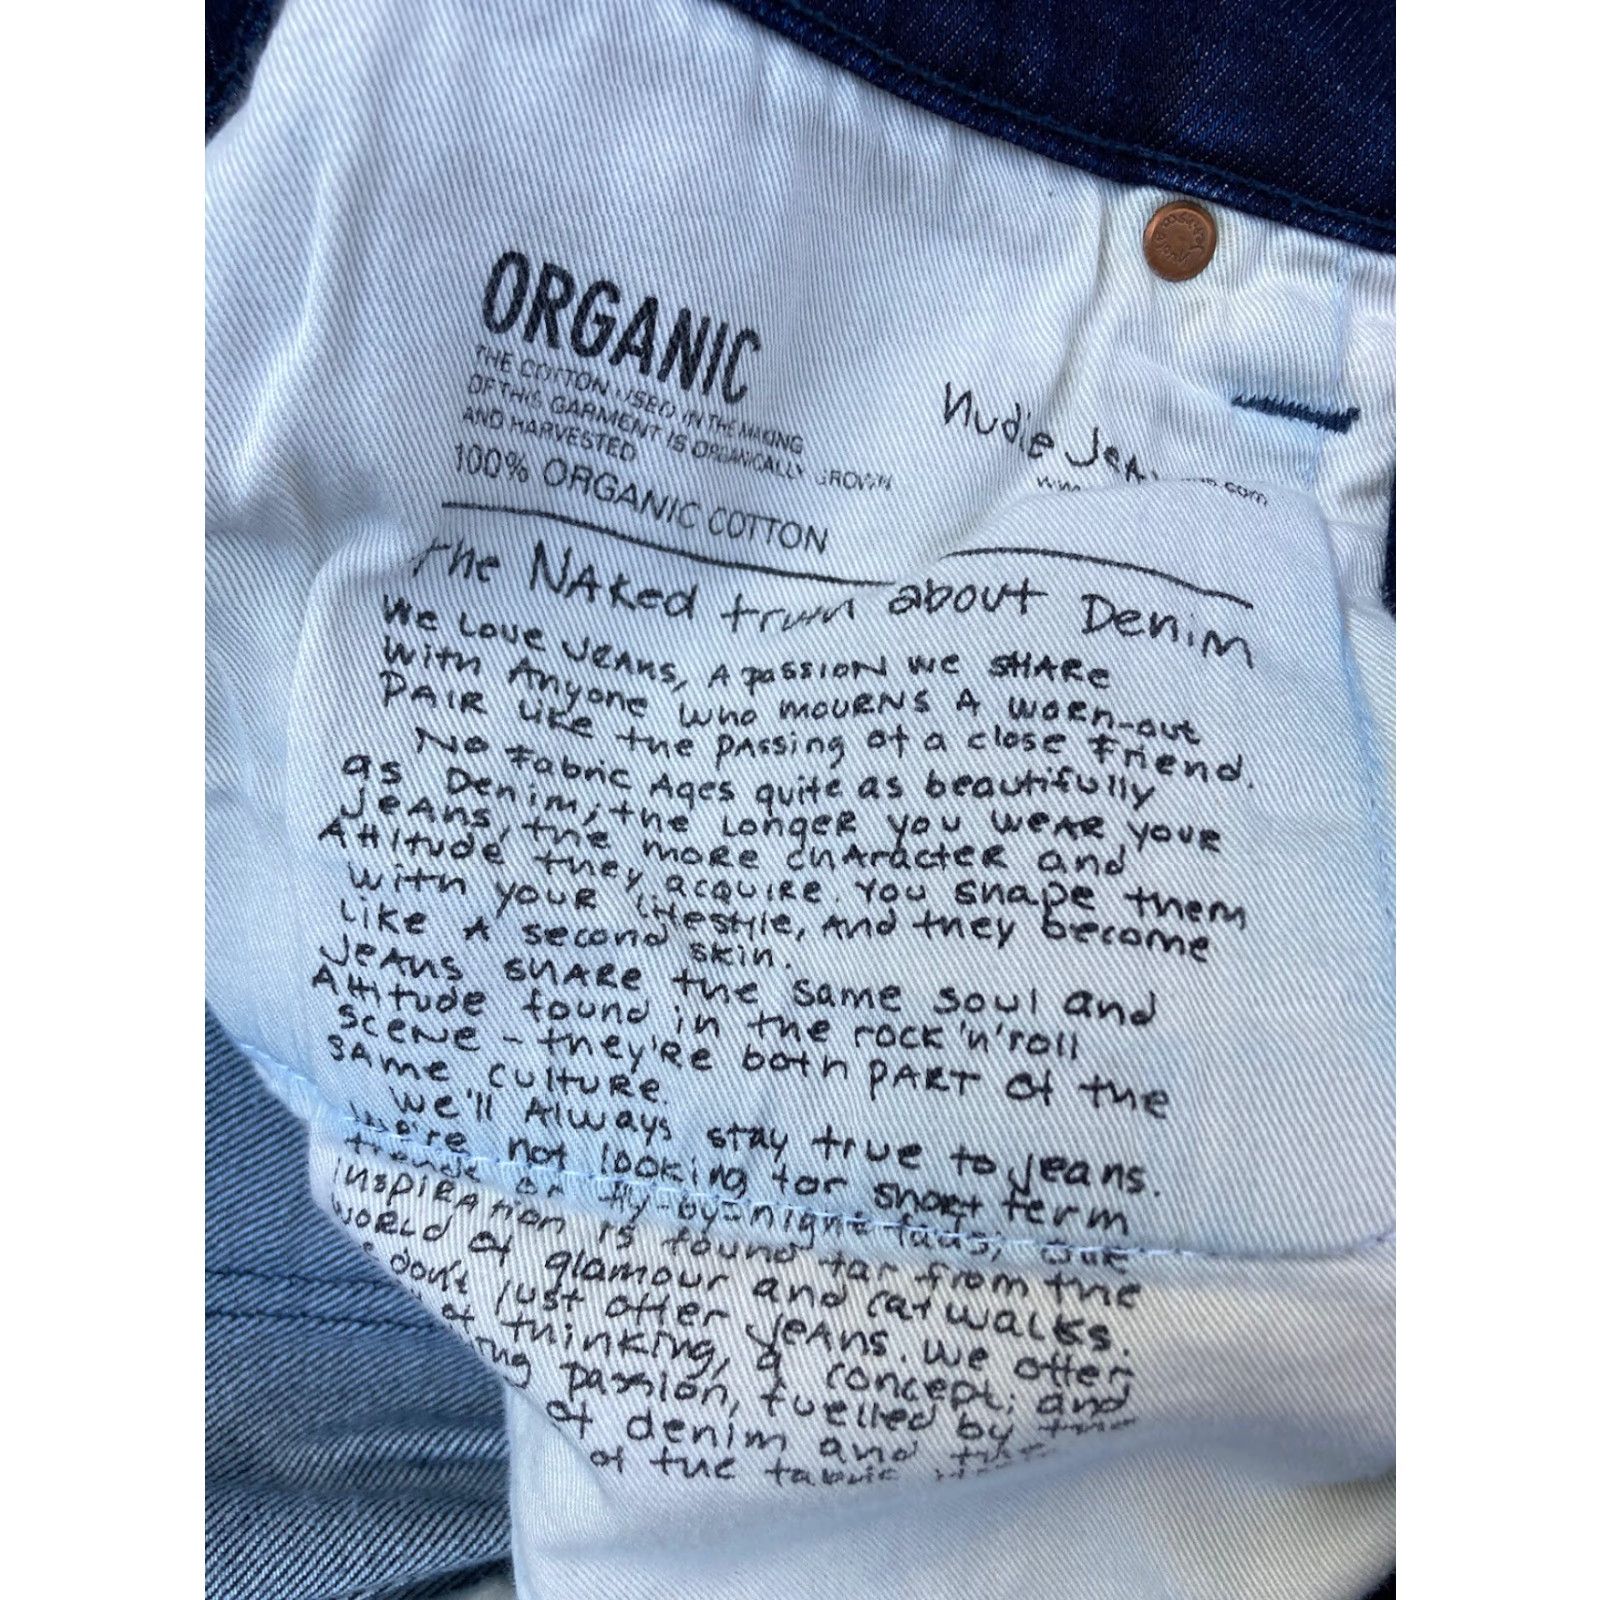 ORGANIC
THE COTTON USED IN THE MAKING
OF THIS GARMENT IS ORGANICALLY GROWN
AND HARVESTED
100% ORGANIC COTTON
Nudie Jeans
www. .com
the NAKed truth about Denim
We Love JEANS, A passION we SHARe
With Anyone who mOURNS A worn-out
PAIR LIKe the PAssing of a close friend.
No Fabric Ages quite as beautifully
as Denim; the LongeR you weAR youR
JeANs, the moRe chAracteR and
Attitude they acquiRe. You shape them
with youR Lifestyle, And they become
Like A second skin.
JeANs shARe the same soul and
Attitude found in the rock'n'roll
sceNe - they'Re both PART of the
sAme cultuRe.
We'll Always stay true to jeans.
we're not looking for short term
trends or fly-by-night fads; our
INspiRAtion is found far from the
woRLD of glamour and catwalks.
don't just offer JeANs. We offer
of thinking, a concept; and
passion, fuelled by the
of denim and the
of the fabric